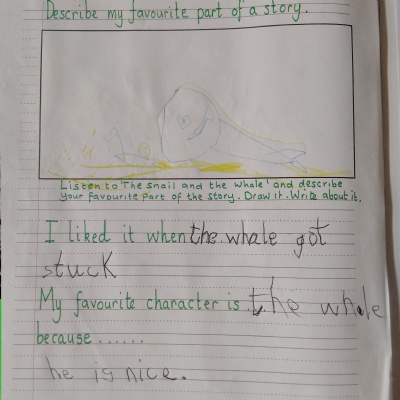 Describe my favourite part of a story.
Listen to 'The snail and the whale' and describe
your favourite part of the story. Draw it. Write about it.
I liked it when the whale got
stuck
My favourite character is the whale
because......
he is nice.